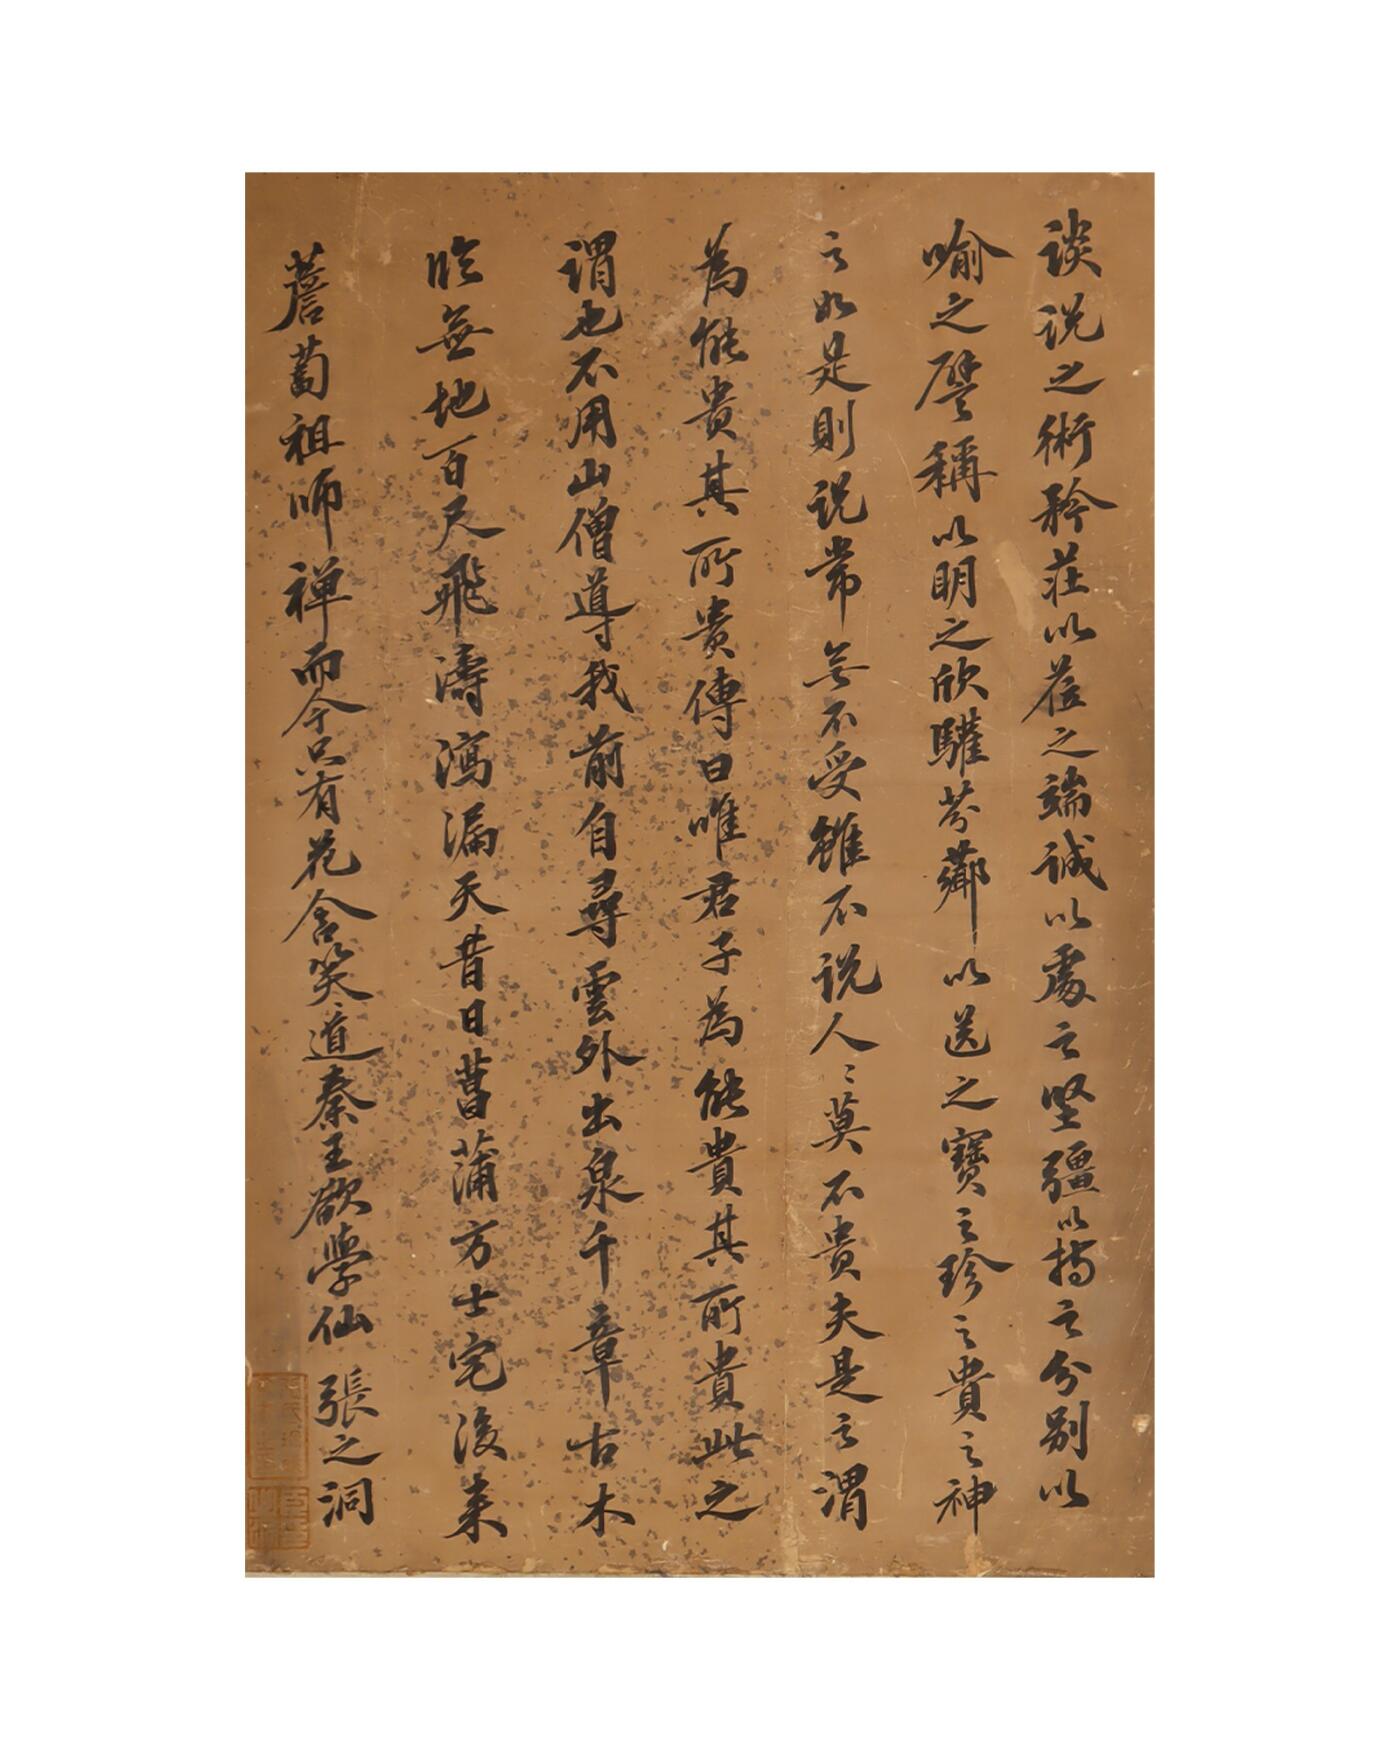 談说之術矜莊以莅之端誠以處之堅疆以持之分别以
喻之譬稱以明之欣驩芬薌以送之寶之珍之貴之神
之如是則说常無不受雖不说人〻莫不貴夫是之謂
為能貴其所貴傳曰唯君子為能貴其所貴此之
謂也不用山僧導我前自尋雲外出泉千章古木
臨無地百尺飛濤瀉漏天昔日菖蒲方士宅後来
薝蔔祖師禅而今只有花含笑〻道秦王欲學仙
張之洞